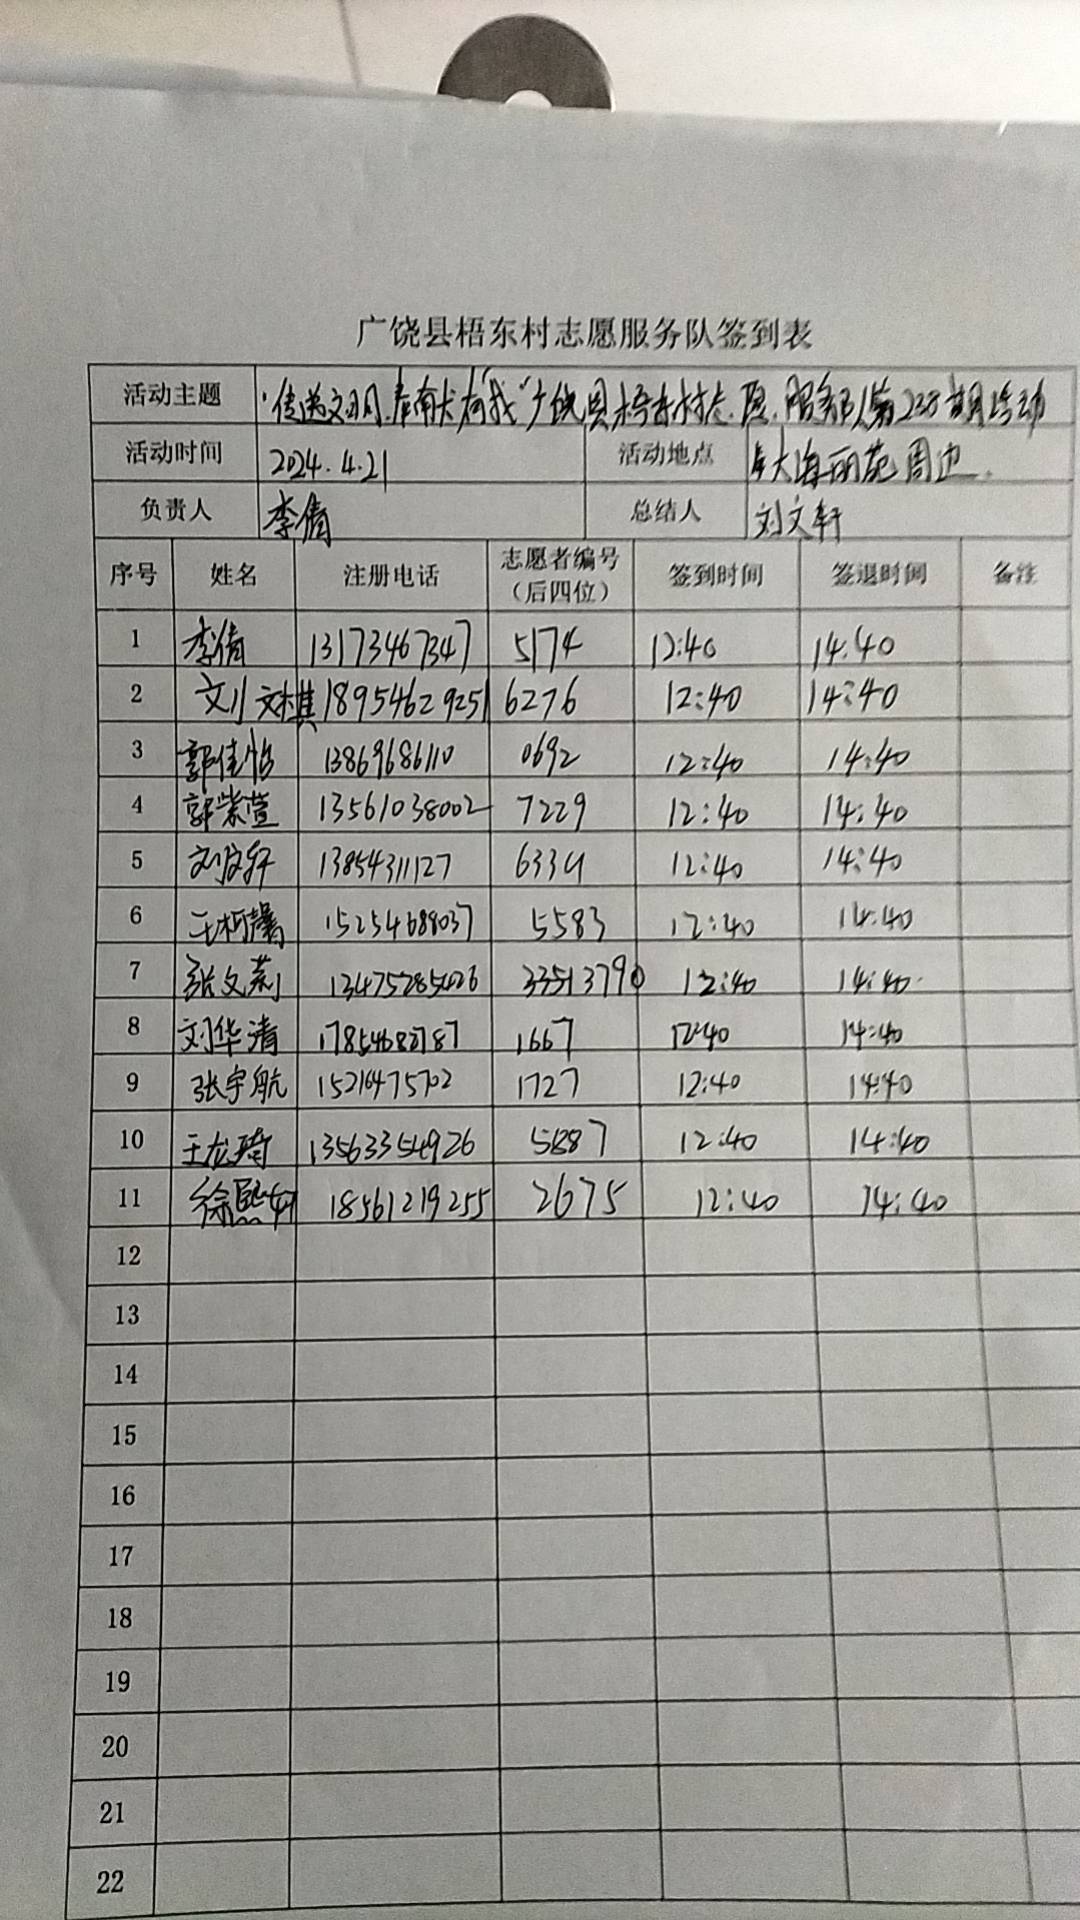 广饶县梧东村志愿服务队签到表
活动主题 "传递文明,奉献有我"广饶县梧东村志愿服务队第238期活动
活动时间 2024.4.21 活动地点 大海丽苑周边.
负责人 李倩 总结人 刘文轩
序号 姓名 注册电话 志愿者编号(后四位) 签到时间 签退时间 备注
1 李倩 13173467347 5174 12:40 14:40
2 刘文棋 18954629251 6276 12:40 14:40
3 郭佳怡 13869686110 0692 12:40 14:40
4 郭紫萱 13561038002 7229 12:40 14:40
5 刘文轩 13854311127 6334 12:40 14:40
6 王柯馨 15254688037 5583 12:40 14:40
7 张文莉 13475285426 33513790 12:40 14:40
8 刘华清 1667 12:40 14:40
9 张宇航 15216475702 1727 12:40 14:40
10 王龙琦 13563354926 5887 12:40 14:40
11 徐熙 18561219255 2675 12:40 14:40
12
13
14
15
16
17
18
19
20
21
22